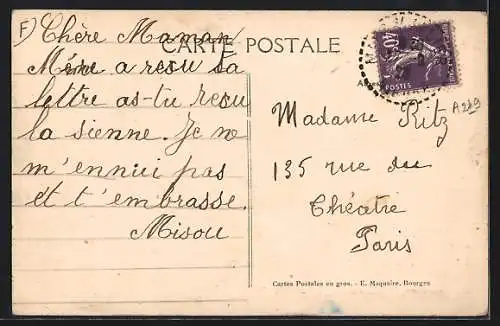 F)
CARTE POSTALE
Chère Maman
Mémé a reçu ta
lettre as-tu reçu
la sienne. Je ne
m'ennui pas
et t'embrasse.
Misou
40c
POSTES
A219
Madame Ritz
135 rue du
Théatre
Paris
Cartes Postales en gros. - E. Maquaire, Bourges